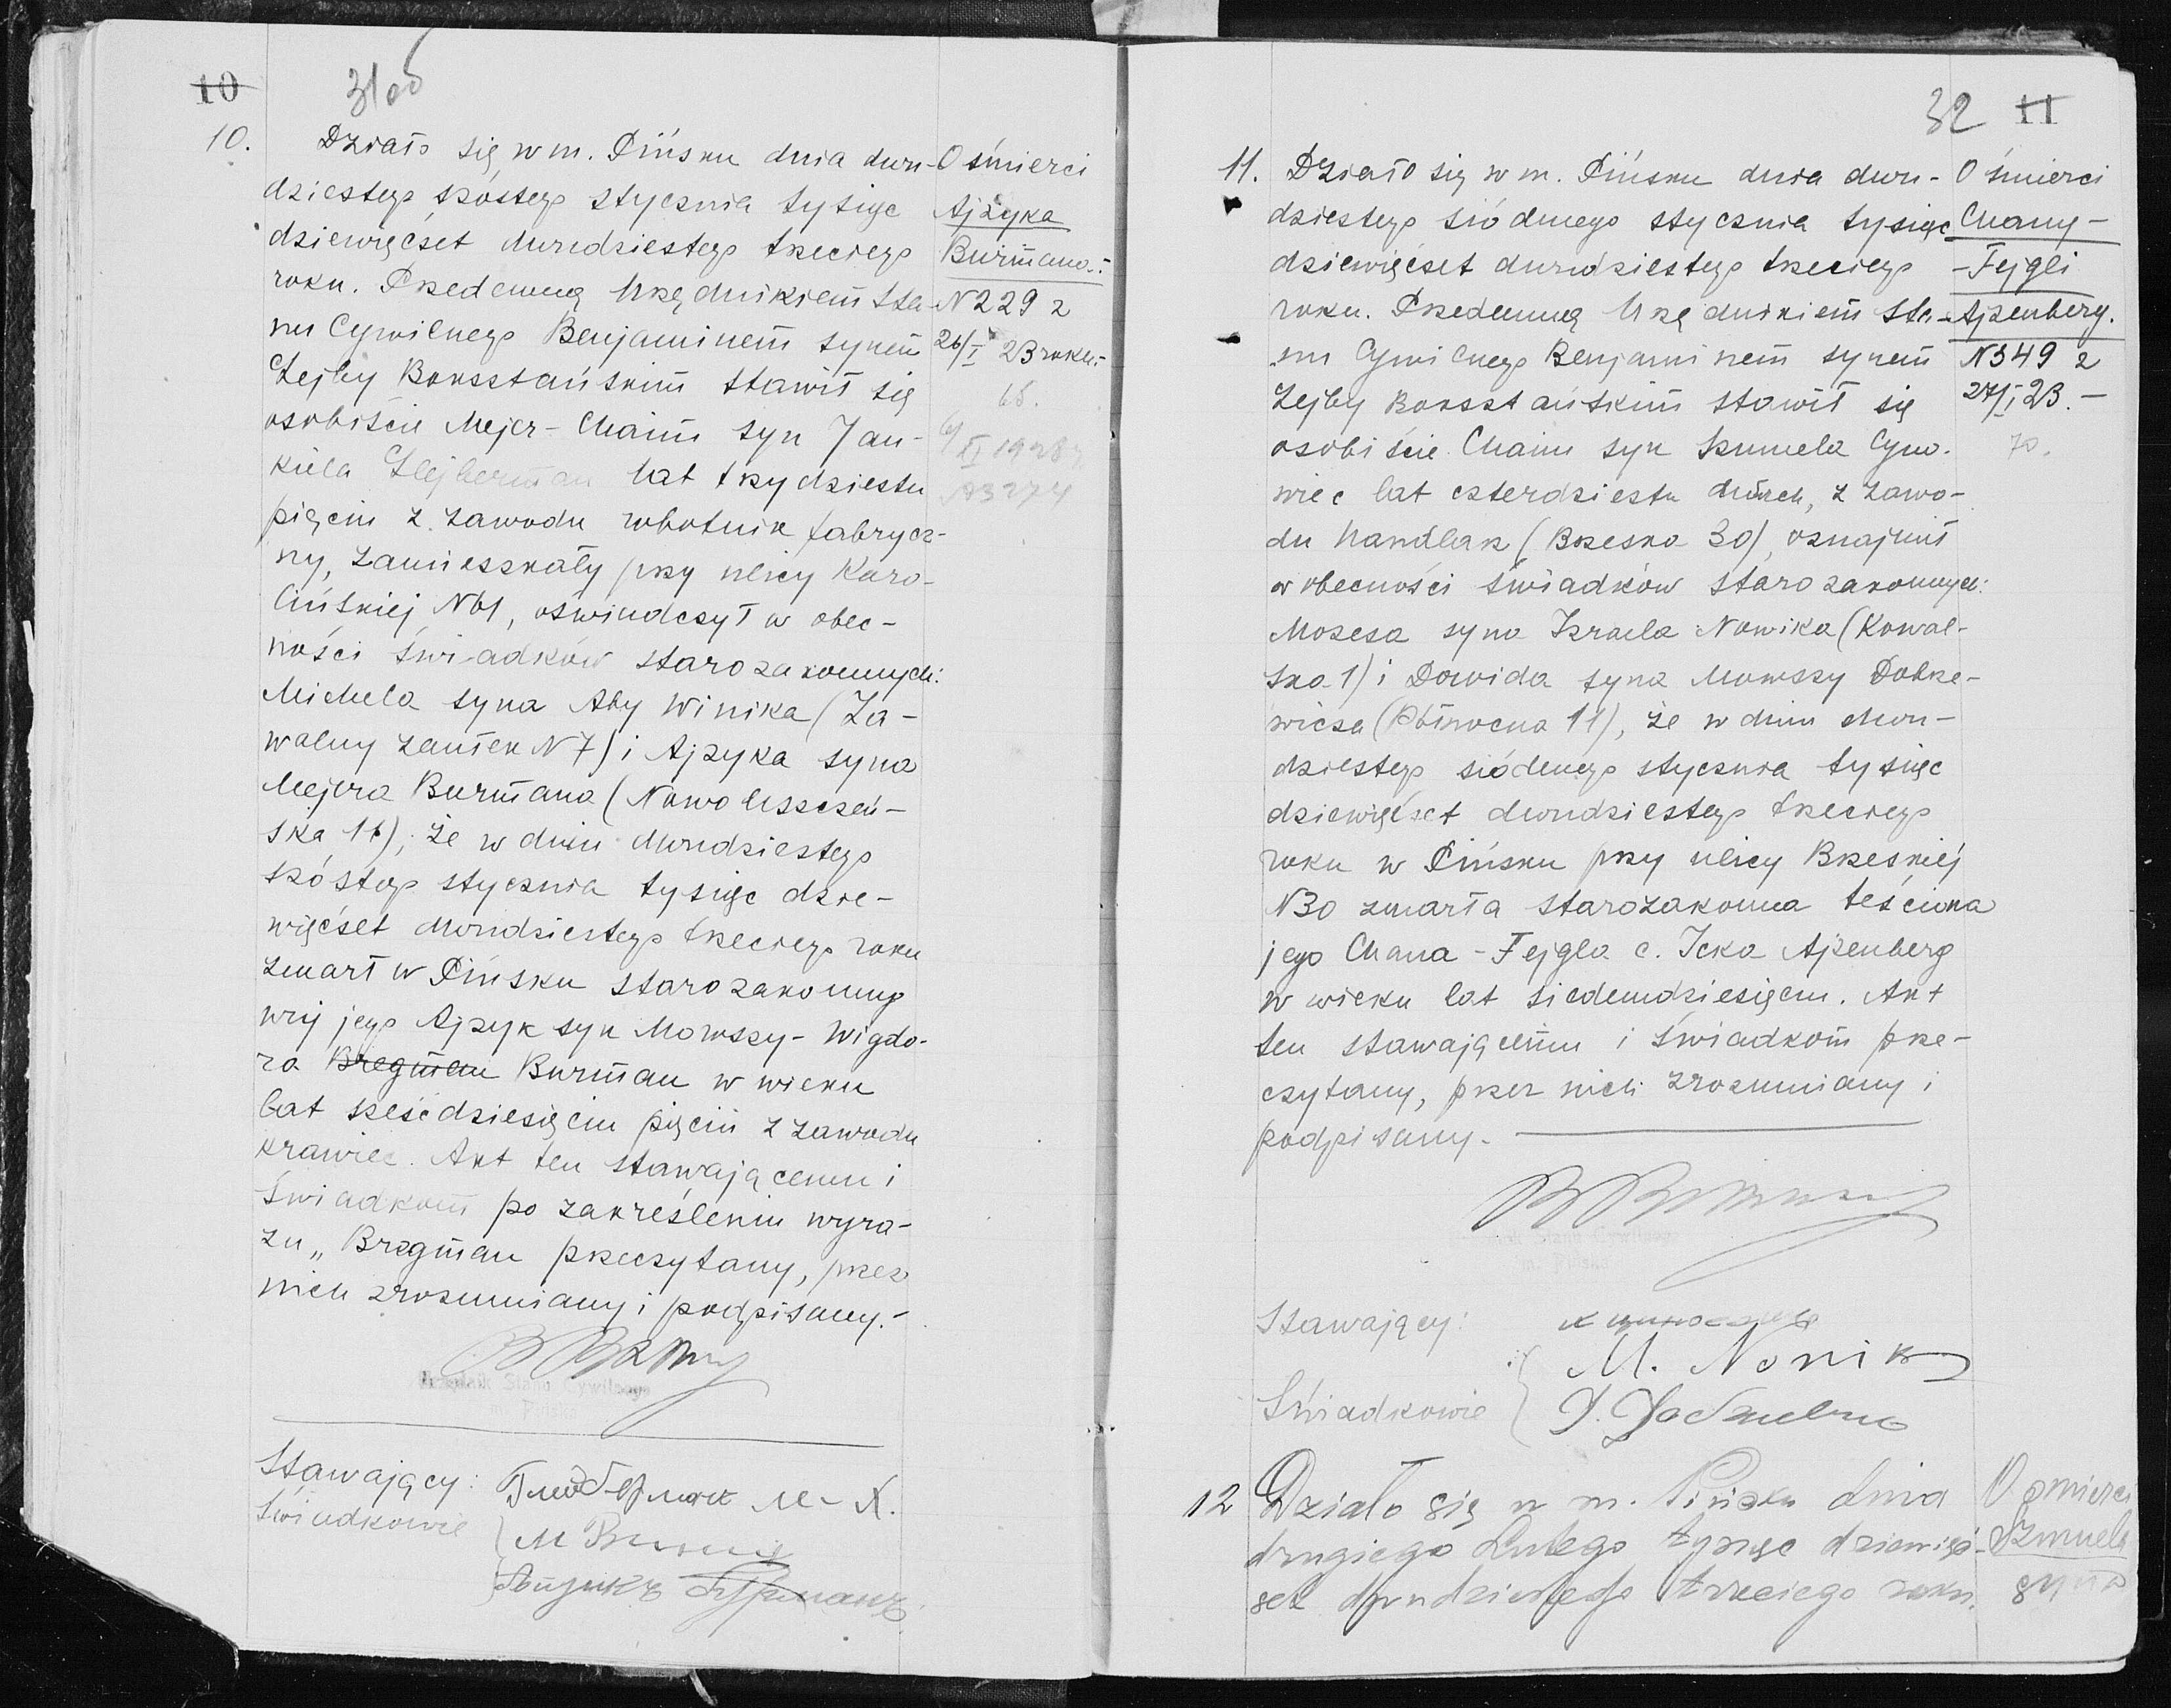 10
31об
10.
Działo się w m. Pińsku dnia dwu-
dziestego szóstego stycznia tysiąc
dziewięćset dwudziestego trzeciego
roku. Przedemną Urzędnikiem Sta-
nu Cywilnego Benjaminem synem
Lejby Boksztańskim stawił się
osobiście Mejer-Chaim syn Jan-
kiela Glejberman lat trzydziestu
pięciu z zawodu robotnik fabrycz-
ny, zamieszkały przy ulicy Karo-
lińskiej N61, oświadczył w obec-
ności świadków starozakonnych:
Michela syna Aby Winika (Za-
walny zaułek N7) i Ajzyka syna
Mejera Burmana (Nowo Leszczeń-
ska 16), że w dniu dwudziestego
szóstego stycznia tysiąc dzie-
więćset dwudziestego trzeciego roku
zmarł w Pińsku starozakonny
wuj jego Ajzyk syn Mowszy-Wigdo-
ra Bregman Burman w wieku
lat sześćdziesięciu pięciu z zawodu
krawiec. Akt ten stawającemu i
świadkom po zakreśleniu wyra-
zu „Bregman przeczytany, przez
nich zrozumiany i podpisany.-
Urzędnik Stanu Cywilnego
m. Pińska
Stawający: Глейберман М-Х.
Świadkowie
Айзикъ Бурманъ
O śmierci
Ajzyka
Burmana.-
N 229 z
26/I 23 roku.-
65.
XI 1928
N3274
32 11
11. Działo się w m. Pińsku dnia dwu-
dziestego siódmego stycznia tysiąc
dziewięćset dwudziestego trzeciego
roku. Przedemną Urzędnikiem Sta-
nu Cywilnego Benjaminem synem
Lejby Boksztańskim stawił się
osobiście Chaim syn Szmuela Cyno-
wiec lat czterdziestu dwóch, z zawo-
du handlarz (Brzeska 30), oznajmił
w obecności świadków starozakonnych:
Mozesa syna Izraela Nowika (Kowal-
ska 1) i Dawida syna Mowszy Dobrze-
wicza (Północna 11), że w dniu dwu-
dziestego siódmego stycznia tysiąc
dziewięćset dwudziestego trzeciego
roku w Pińsku przy ulicy Brzeskiej
N30 zmarła starozakonna teściowa
jego Chana-Fejgla c. Icka Ajzenberg
w wieku lat siedemdziesięciu. Akt
ten stawającemu i świadkom prze-
czytany, przez nich zrozumiany i
podpisany.-
Urzędnik Stanu Cywilnego
m. Pińska
Stawający:
M. Nowik
Świadkowie
O śmierci
Chany-
-Fejgli
Ajzenberg.
N349 z
27/I 23.-
70.
12 Działo się w m. Pińsku dnia
drugiego Lutego tysiąc dziewięć-
set dwudziestego trzeciego roku.
O śmierci
Szmuela
syna